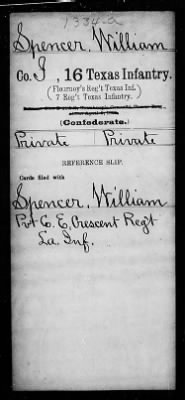 1334-a
Spencer, William
Co. I, 16 Texas Infantry.
(Flournoy's Reg't Texas Inf.)
(7 Reg't Texas Infantry.)
(Confederate.)
Private Private
REFERENCE SLIP.
Cards filed with
Spencer, William
Pvt C. E, Crescent Regt
La Inf.